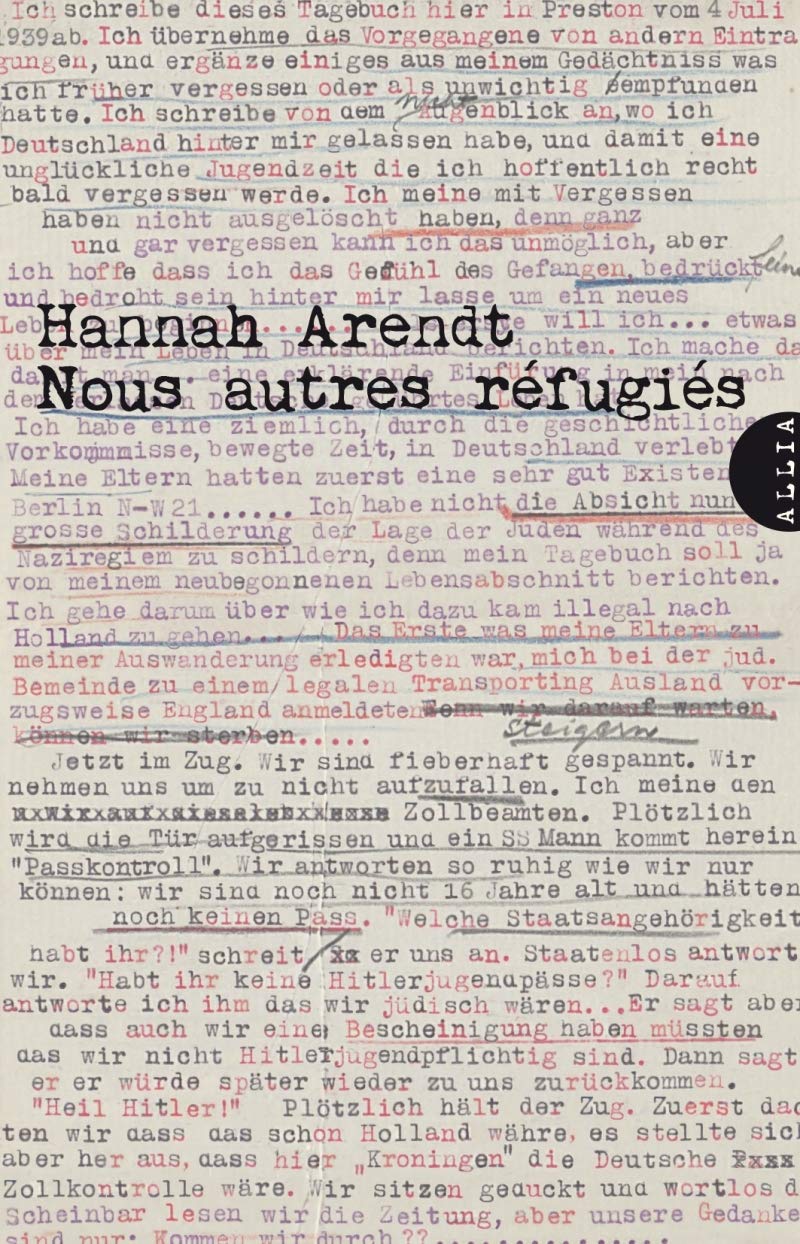 Ich schreibe dieses Tagebuch hier in Preston vom 4 Juli
1939ab. Ich übernehme das Vorgegangene von andern Eintra
gungen, und ergänze einiges aus meinem Gedächtniss was
ich früher vergessen oder als unwichtig empfunden
nicht
hatte. Ich schreibe von dem Augenblick an,wo ich
Deutschland hinter mir gelassen habe, und damit eine
unglückliche Jugendzeit die ich hoffentlich recht
bald vergessen werde. Ich meine mit Vergessen
haben nicht ausgelöscht haben, denn ganz
und gar vergessen kann ich das unmöglich, aber
ich hoffe dass ich das Gefühl des Gefangen, bedrückt
und bedroht sein hinter mir lasse um ein neues
Hannah Arendt
will ich... etwas
über mein Leben in Deutschland berichten. Ich mache da
Nous autres réfugiés
Ich habe eine ziemlich, durch die geschichtliche
Vorkommmisse, bewegte Zeit, in Deutschland verlebt
ALLIA
Meine Eltern hatten zuerst eine sehr gut Existen
Berlin N-W21...... Ich habe nicht die Absicht nun
grosse Schilderung der Lage der Juden während des
Naziregiem zu schildern, denn mein Tagebuch soll ja
von meinem neubegonnenen Lebensabschnitt berichten.
Ich gehe darum über wie ich dazu kam illegal nach
Holland zu gehen... Das Erste was meine Eltern zu
meiner Auswanderung erledigten war, mich bei der jud.
Bemeinde zu einem/legalen Transporting Ausland vor-
zugsweise England anmeldeten Wenn wir darauf warten,
können wir sterben.....
steigern
Jetzt im Zug. Wir sind fieberhaft gespannt. Wir
nehmen uns um zu nicht aufzufallen. Ich meine den
Zollbeamten. Plötzlich
wird die Tür aufgerissen und ein SS Mann kommt herein
"Passkontroll". Wir antworten so ruhig wie wir nur
können: wir sind noch nicht 16 Jahre alt und hätten
noch keinen Pass. "Welche Staatsangehörigkeit
habt ihr?!" schreit/xx er uns an. Staatenlos antwort
wir. "Habt ihr keine Hitlerjugendpässe?" Darauf
antworte ich ihm das wir jüdisch wären...Er sagt aber
dass auch wir eine Bescheinigung haben müssten
das wir nicht Hitlerjugendpflichtig sind. Dann sagt
er er würde später wieder zu uns zurückkommen.
"Heil Hitler!" Plötzlich hält der Zug. Zuerst dac
ten wir dass das schon Holland währe, es stellte sich
aber her aus, dass hier „Kroningen" die Deutsche
Zollkontrolle wäre. Wir sitzen geduckt und wortlos d
Scheinbar lesen wir die Zeitung, aber unsere Gedanke
sind nur: Kommen wir durch ??..............